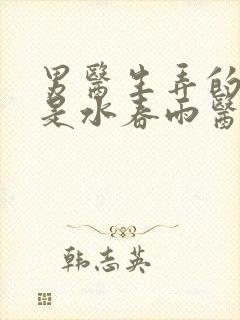 男醫生弄的
是水春雨醫
韩志英